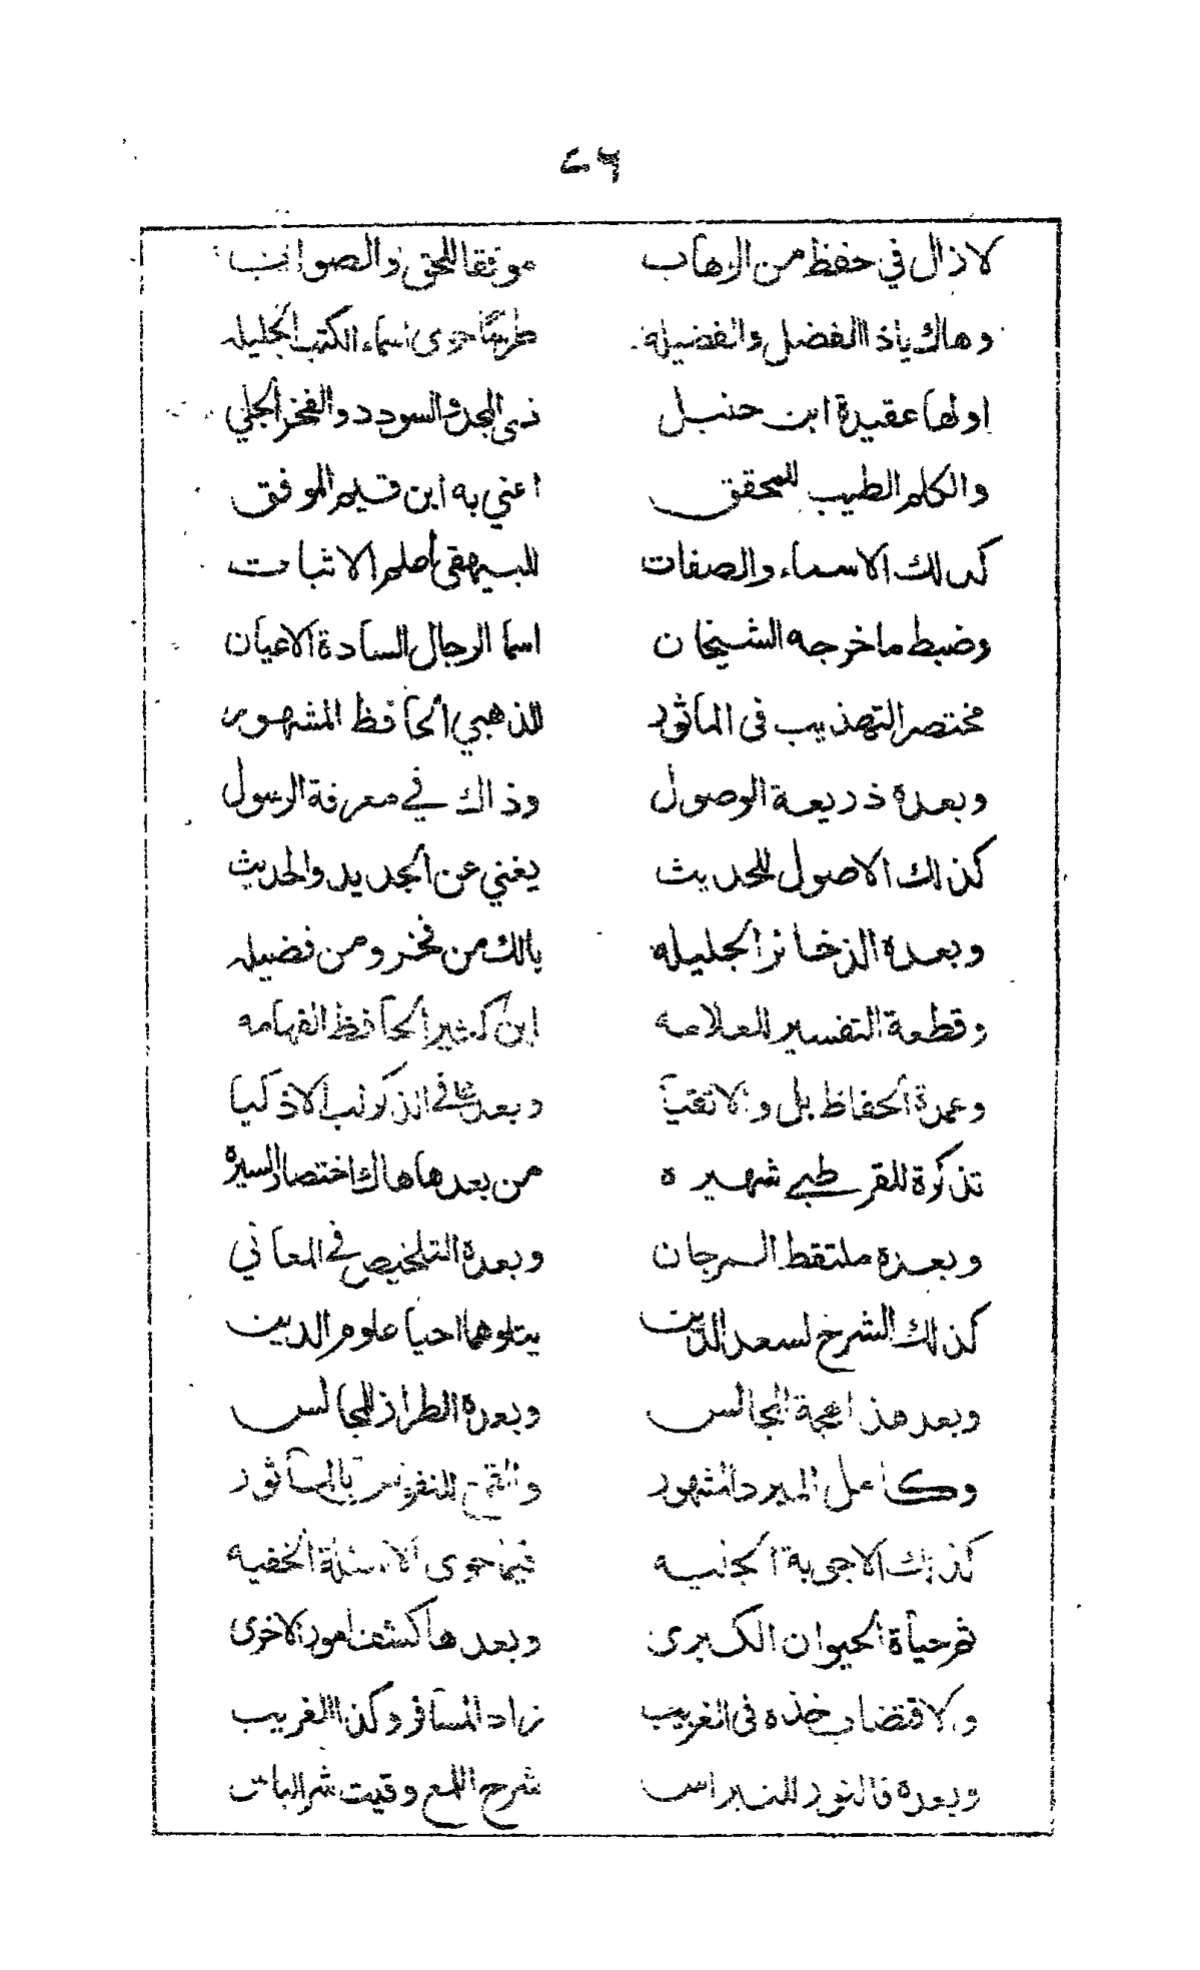 ٤٦
لا زال في حفظ من الوهاب موفقا للحق والصواب
وهاك ياذا الفضل والفضيله طرسا حوى اسماء الكتب الجليله
اولها عقيدة ابن حنبل ذي المجد والسودد والفخر الجلي
والكلم الطيب للمحقق اعني به ابن قيم الموفق
كذلك الاسماء والصفات للبيهقي أعلم الاثبات
وضبط ما خرجه الشيخان اسما الرجال السادة الاعيان
مختصر التهذيب في الماثور للذهبي الحافظ المشهور
وبعده ذريعة الوصول وذاك في معرفة الرسول
كذلك الاصول للحديث يغني عن الجديد والحديث
وبعده الذخائر الجليله يالك من فخر ومن فضيله
وقطعة التفسير للعلامه ابن كثير الحافظ الفهامه
وعمدة الحفاظ بل والاتقيا وبعد في الذكر الاذكيا
تذكرة للقرطبي شهيره من بعدها هاك اختصار السيره
وبعده ملتقط المرجان وبعده التلخيص في المعاني
كذلك الشرح لسعد الدين يتلوهما احيا علوم الدين
وبعد هذا بهجة المجالس وبعده الطراز للمجالس
وكامل المبرد المشهور والفتح بالماثور
كذلك الاجوبة الجنيه فيما حوى الاسئلة الخفيه
ثم حياة الحيوان الكبرى وبعدها كشف امور الاخرى
والاقتضاب خذه في الغريب زاد المسافر وكذا الغريب
وبعده فالنور للنبراس شرح اللمع وقيت شر الباس